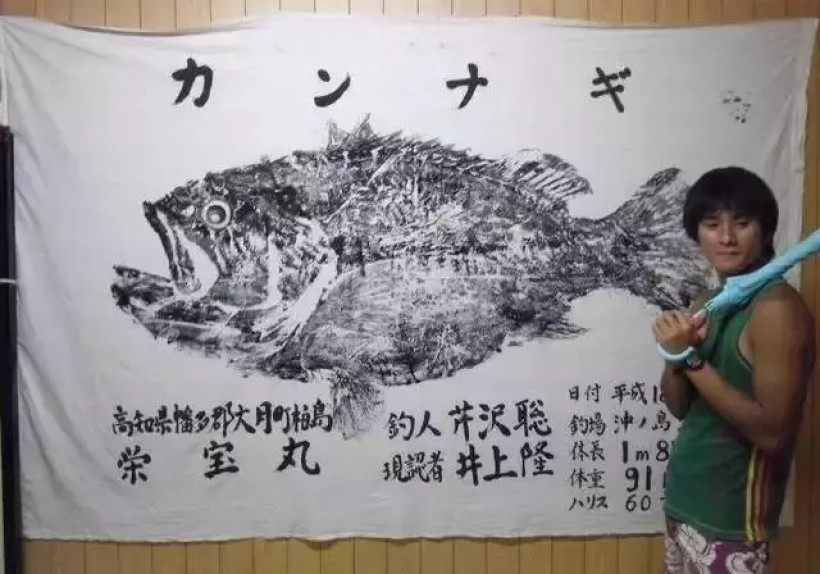 カンナギ
高知県幡多郡大月町柏島
栄宝丸
釣人 芹沢聡
現認者 井上隆
日付 平成18
釣場 沖ノ島
体長 1m8
体重 91
ハリス 60